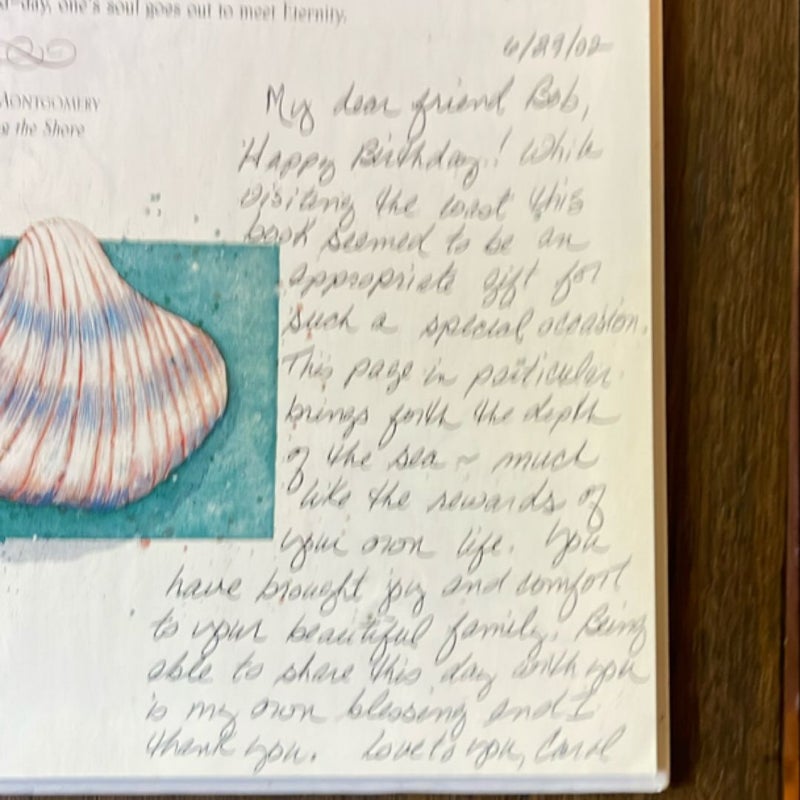 day, one's soul goes out to meet Eternity.
6/29/02
MONTGOMERY
the Shore
My dear friend Bob,
Happy Birthday! While
visiting the coast this
book seemed to be an
appropriate gift for
such a special occasion.
This page in particular
brings forth the depth
of the sea ~ much
like the rewards of
your own life. You
have brought joy and comfort
to your beautiful family. Being
able to share this day with you
is my own blessing and I
thank you. Love to you, Carol